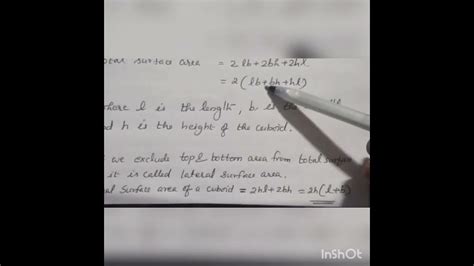 otal surface area = 2 lb + 2bh + 2hl
= 2 (lb + bh + hl)
here l is the length, b is the
d h is the height of the cuboid.
we exclude top & bottom area from total surface
it is called lateral surface area.
al Surface area of a cuboid = 2hl + 2bh = 2h (l+b)
InShOt